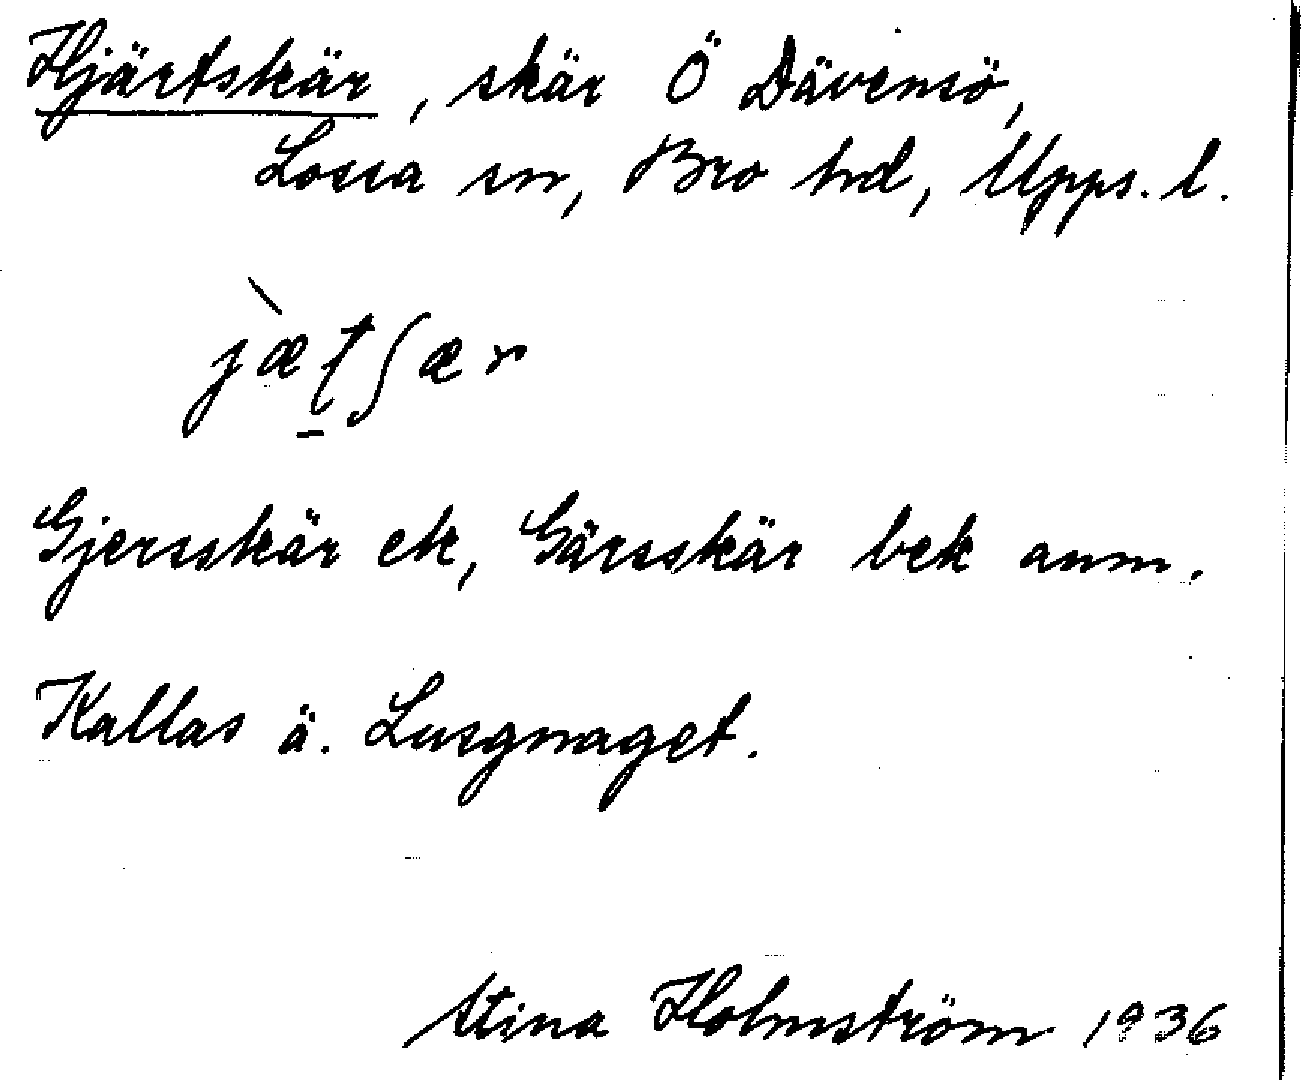 Hjärtskär, skär Ö Dävensö,
Lossa sn, Bro hd, Upps. l.
jæ̀ʈʃær
Gjersskär ek, Gärsskär bek anm.
Kallas ä. Lusgnaget.
Stina Holmström 1936